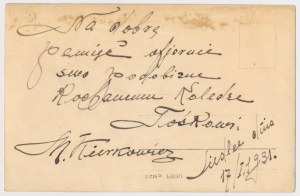 Na dobrą
pamięć ofiaruje
swo podobiznę
Kochanemu Koledze
Tośkowi
M. Kierkowicz
17/I 1931.